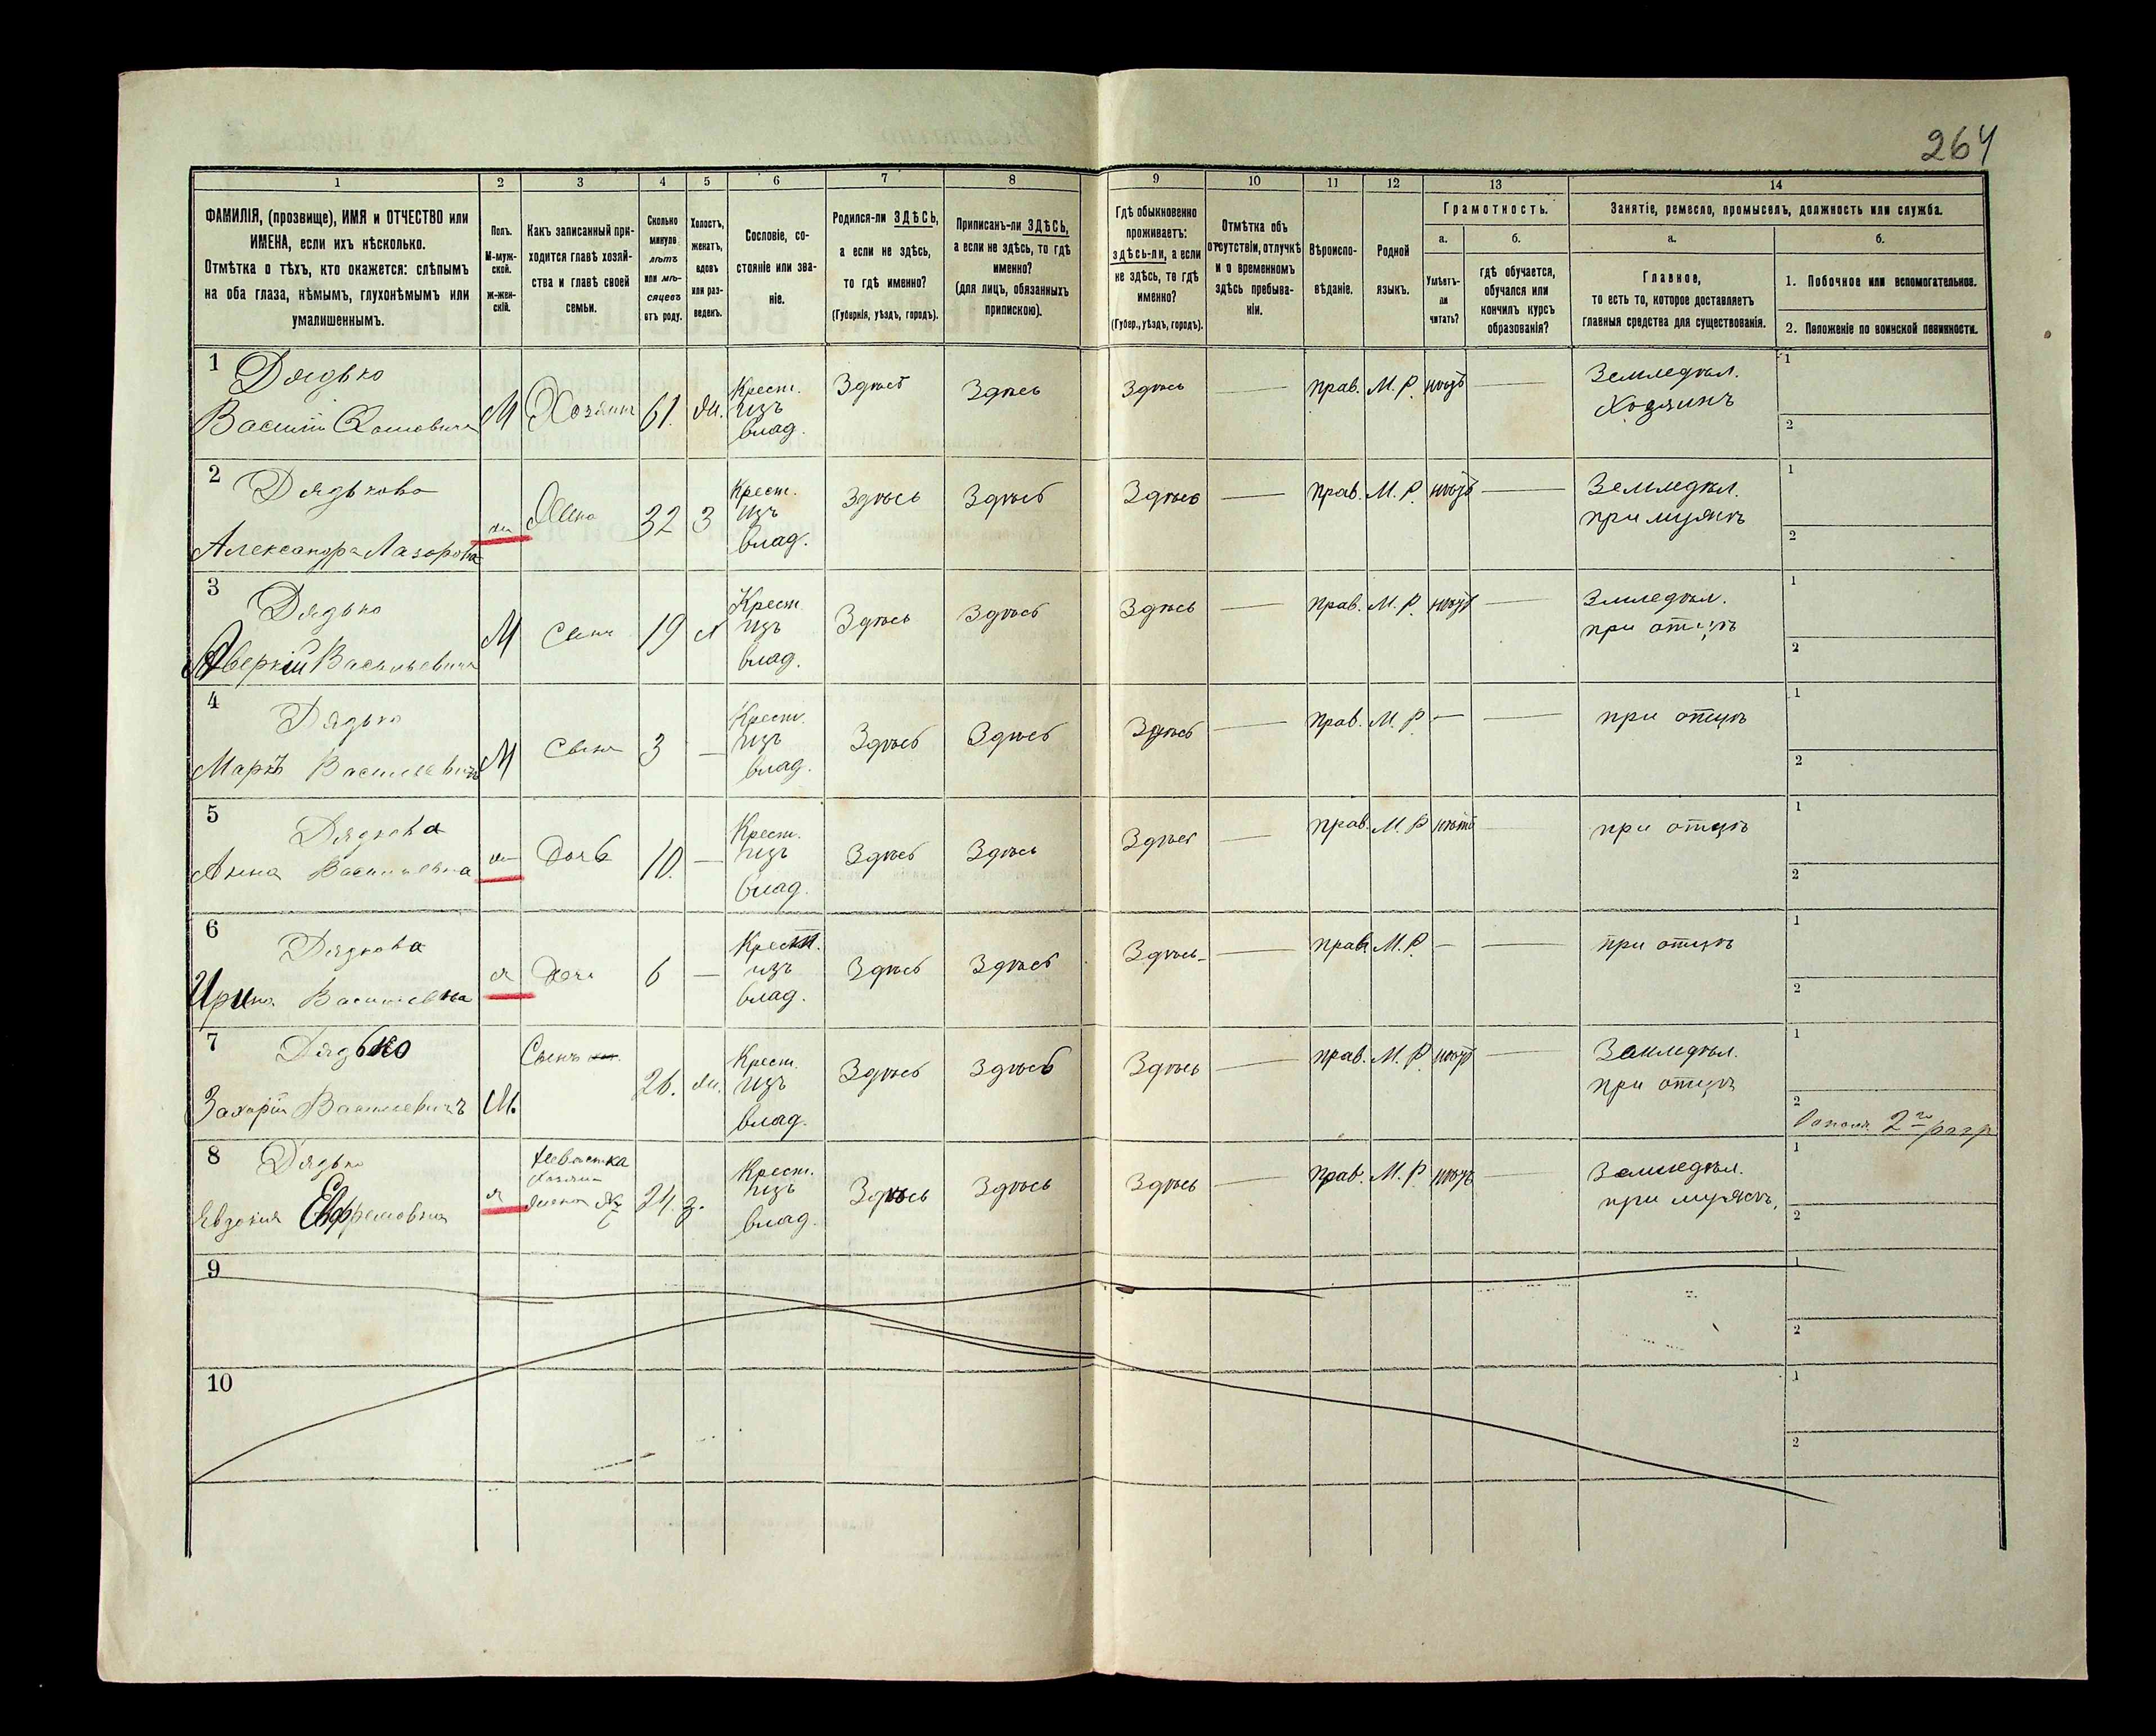 264
1 2 3 4 5 6 7 8 9 10 11 12 13 14
ФАМИЛІЯ, (прозвище), ИМЯ и ОТЧЕСТВО или
ИМЕНА, если ихъ нѣсколько.
Отмѣтка о тѣхъ, кто окажется: слѣпымъ
на оба глаза, нѣмымъ, глухонѣмымъ или
умалишеннымъ.
Полъ.
М-муж-
ской.
ж-жен-
скій.
Какъ записанный при-
ходится главѣ хозяй-
ства и главѣ своей
семьи.
Сколько
минуло
лѣтъ
или мѣ-
сяцевъ
отъ роду.
Холостъ,
женатъ,
вдовъ
или раз-
веденъ.
Сословіе, со-
стояніе или зва-
ніе.
Родился-ли ЗДѢСЬ,
а если не здѣсь,
то гдѣ именно?
(Губернія, уѣздъ, городъ).
Приписанъ-ли ЗДѢСЬ,
а если не здѣсь, то гдѣ
именно?
(для лицъ, обязанныхъ
припискою).
Гдѣ обыкновенно
проживаетъ:
здѣсь-ли, а если
не здѣсь, то гдѣ
именно?
(Губер., уѣздъ, городъ).
Отмѣтка объ
отсутствіи, отлучкѣ
и о временномъ
здѣсь пребыва-
ніи.
Вѣроиспо-
вѣданіе.
Родной
языкъ.
Грамотность.
а.
Умѣетъ-
ли
читать?
б.
гдѣ обучается,
обучался или
кончилъ курсъ
образованія?
Занятіе, ремесло, промыселъ, должность или служба.
а.
Главное,
то есть то, которое доставляетъ
главныя средства для существованія.
б.
1. Побочное или вспомогательное.
2. Положеніе по воинской повинности.
1 Дядько
Василій М Хозяинъ 61. ж.
Крест.
изъ
влад.
Здѣсь Здѣсь Здѣсь — прав. М. Р. нѣтъ —
Земледѣл.
Хозяинъ
1
2
2 Дядькова
Александра Лазорова ж Жена 32 З
Крест.
изъ
влад.
Здѣсь Здѣсь Здѣсь — прав. М. Р. нѣтъ —
Земледѣл.
при мужѣ
1
2
3 Дядько
Аверкій Васильевичъ М Сынъ 19 х
Крест.
изъ
влад.
Здѣсь Здѣсь Здѣсь — прав. М. Р. нѣтъ —
Змледѣл.
при отцѣ
1
2
4 Дядько
Маркъ Васильевичъ М Сынъ 3 —
Крест.
изъ
влад.
Здѣсь Здѣсь Здѣсь — прав. М. Р — —
при отцѣ
1
2
5 Дядькова
Анна Васильевна ж Дочь 10. —
Крест.
изъ
влад.
Здѣсь Здѣсь Здѣсь — прав. М. Р нѣтъ —
при отцѣ
1
2
6 Дядькова
Ирина Васильевна ж Дочь 6 —
Крест.
изъ
влад.
Здѣсь Здѣсь Здѣсь — прав. М. Р. — —
при отцѣ
1
2
7 Дядько
Захарій Васильевичъ М. Сынъ 26. ж.
Крест.
изъ
влад.
Здѣсь Здѣсь Здѣсь — прав. М. Р нѣтъ —
Земледѣл.
при отцѣ
1
2 2го разр
8 Дядько
Евдокия Евфремовна ж
Невѣстка
Хозяина
жена
24. з.
Крест.
изъ
влад.
Здѣсь Здѣсь Здѣсь — прав. М. Р. нѣтъ —
Земледѣл.
при мужѣ,
1
2
9
1
2
10
1
2